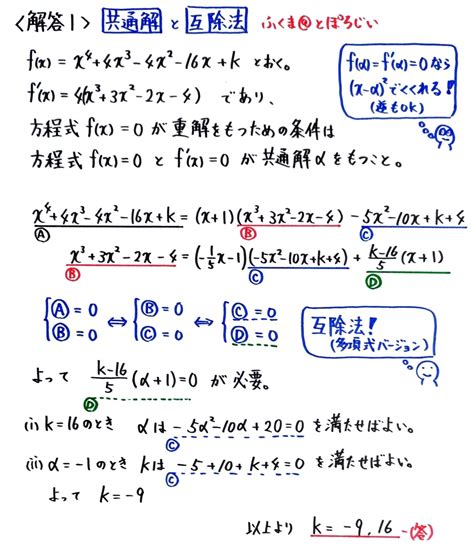 〈解答1〉 共通解 と 互除法 ふくま@とぽろじい
f(x) = x⁴+4x³-4x²-16x+k とおく。
f'(x) = 4(x³+3x²-2x-4) であり、
方程式 f(x)=0 が重解をもつための条件は
方程式 f(x)=0 と f'(x)=0 が共通解αをもつこと。
f(α)=f'(α)=0 なら
(x-α)² でくくれる!
(逆もOK)
x⁴+4x³-4x²-16x+k = (x+1)(x³+3x²-2x-4) -5x²-10x+k+4
Ⓐ Ⓑ Ⓒ
x³+3x²-2x-4 = (-1/5x-1)(-5x²-10x+k+4) + k-16/5(x+1)
Ⓑ Ⓒ Ⓓ
{Ⓐ=0 ⇔ {Ⓑ=0 ⇔ {Ⓒ=0
Ⓑ=0 Ⓒ=0 Ⓓ=0
互除法!
(多項式バージョン)
よって k-16/5(α+1)=0 が必要。
Ⓓ
(i) k=16のとき αは -5α²-10α+20=0 を満たせばよい。
Ⓒ
(ii) α=-1のとき kは -5+10+k+4=0 を満たせばよい。
Ⓒ
よって k=-9
以上より k=-9,16 -(答)